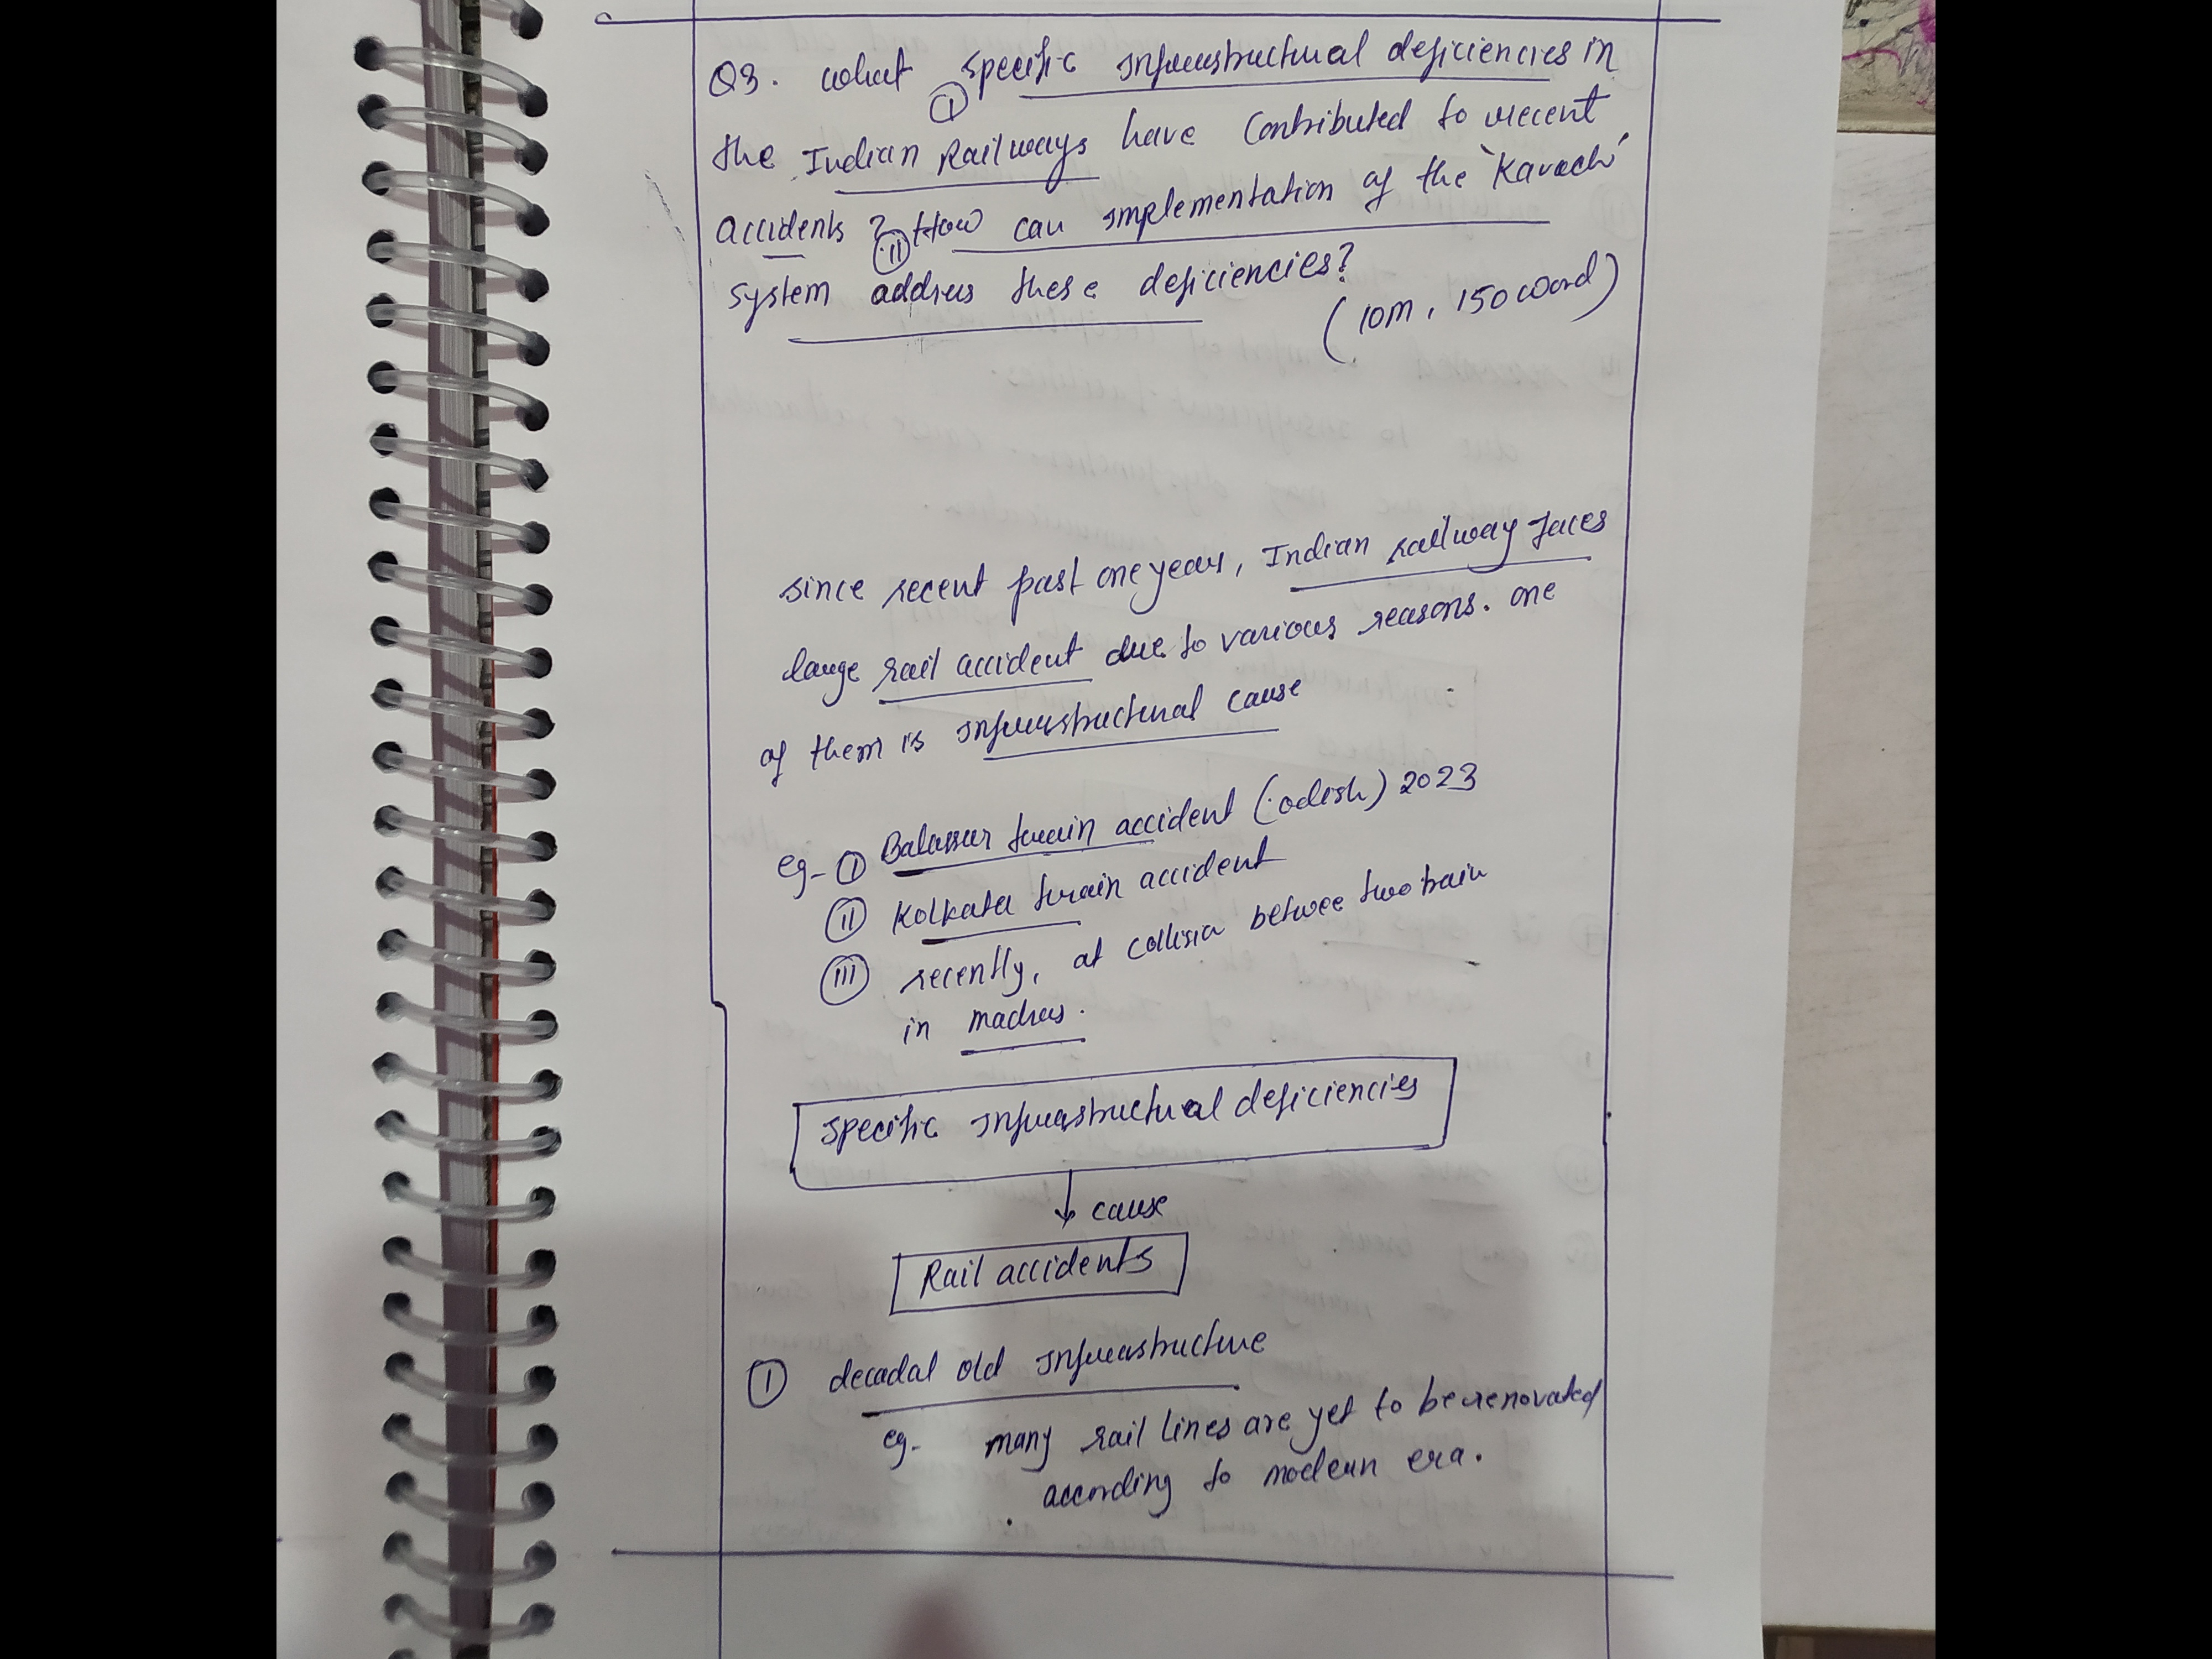 Q3. What specific Infrastructural deficiencies in
I
the Indian Railways have Contributed to recent
accidents ? II How can implementation of the 'Kavach'
system address these deficiencies?
(10m, 150 word)
since recent past one years, Indian railway faces
large rail accident due to various reasons. one
of them is Infrastructural cause
eg- I Balasur train accident (odish) 2023
II Kolkata train accident
III recently, at collision betwee two train
in madras.
specific Infrastructural deficiencies
cause
Rail accidents
I decadal old Infrastructure
eg- many rail lines are yet to be renovated
according to modern era.